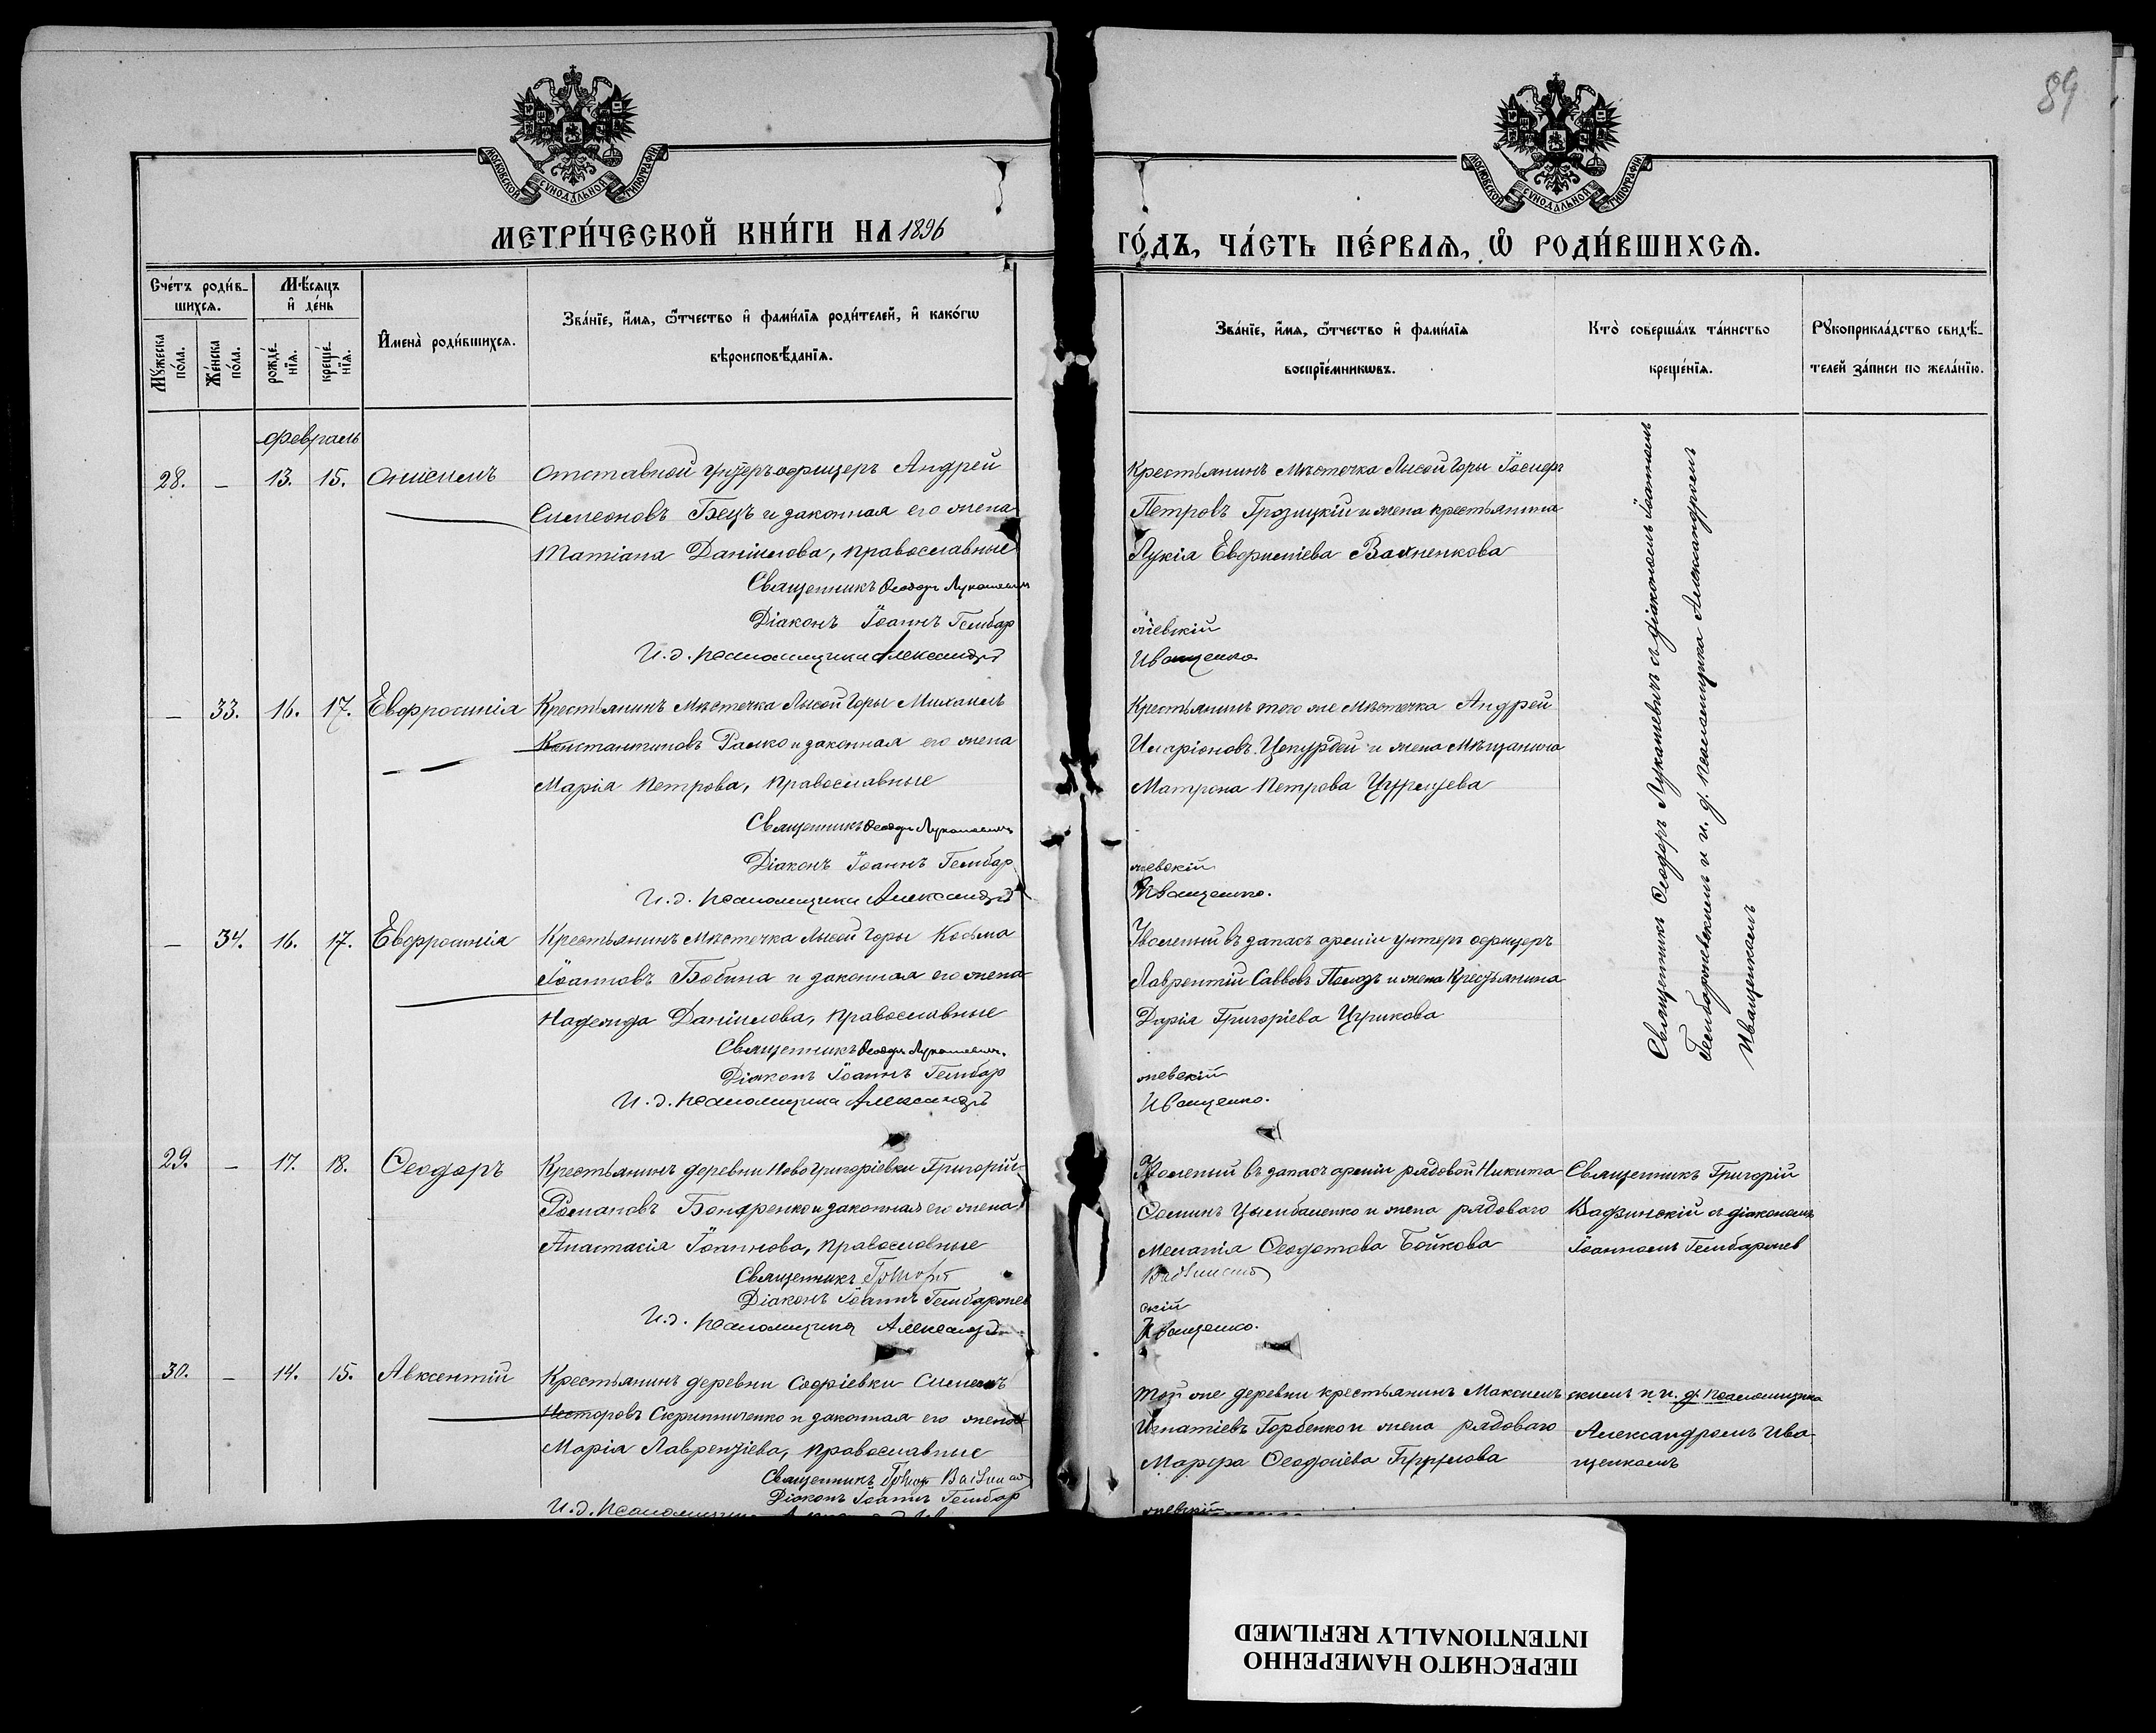 89
МОСКОВСКОЙ СѴНОДАЛЬНОЙ ТИПОГРАФІИ
МОСКОВСКОЙ СѴНОДАЛЬНОЙ ТИПОГРАФІИ
МЕТРИ́ЧЕСКОЙ КНИ́ГИ НА 1896
ГО́ДЪ, ЧА́СТЬ ПЕ́РВАЯ, Ѡ РОДИ́ВШИХСЯ.
Сче́тъ роди́в-
шихся.
Мꙋ́жеска по́ла.
Же́нска по́ла.
Мѣ́сяцъ
и҆ де́нь
рожде́нїя.
креще́нїя.
И҆мена̀ роди́вшихся.
Зва́нїе, и҆́мя, ѻ҆́тчество и҆ фами́лїя роди́телей, и҆ како́гѡ
вѣроисповѣ́данїя.
Зва́нїе, и҆́мя, ѻ҆́тчество и҆ фами́лїя
воспрїе́мникѡвъ.
Кто̀ соверша́лъ та́инство
креще́нїя.
Рꙋкоприкла́дство свидѣ́-
телей за́писи по жела́нїю.
февраль
28. – 13. 15. Онисимъ
Отставной унтеръ-офицеръ Андрей
Симеоновъ Бецъ и законная его жена
Татіана Даніилова, православные
Священникъ Ѳеодоръ Лукашевичъ
Діаконъ Іоаннъ Гембар
И. д. псаломщика Александръ
Крестьянинъ Мѣстечка Лысой Горы Іосифъ
Петровъ Грозицкій и жена крестьянина
Лукія Евфиміева Вахненкова
жевскій
Иващенко
Священникъ Ѳеодоръ Лукашевичъ съ діакономъ Іоанномъ
Гембаржевскимъ и и. д. псаломщика Александромъ
Иващенкомъ
– 33. 16. 17. Евфросинія
Крестьянинъ Мѣстечка Лысой Горы Михаилъ
Константиновъ Ралко и законная его жена
Марія Петрова, православные
Священникъ Ѳеодоръ Лукашевичъ
Діаконъ Іоаннъ Гембар
И. д. псаломщика Александръ
Крестьянинъ того же Мѣстечка Андрей
Иларіоновъ и жена Мѣщанина
Матрона Петрова
жевскій
Иващенко.
– 34. 16. 17. Евфросинія
Крестьянинъ Мѣстечка Лысой Горы Косьма
Іоанновъ Бабина и законная его жена
Надежда Даніилова, православные
Священникъ Ѳеодоръ Лукашевичъ.
Діаконъ Іоаннъ Гембар
И. д. псаломщика Александръ
Уволеный въ запасъ арміи унтеръ офицеръ
Лаврентій Саввовъ и жена Крестьянина
Дарія Григоріева Цурикова
жевскій
Иващенко.
29. – 17. 18. Ѳеодоръ
Крестьянинъ деревни Ново Григоріевки Григорій
Романовъ Бондренко и законная его жена
Анастасія Іоаннова, православные
Священникъ Григорій
Діаконъ Іоаннъ Гембаржев
И. д. псаломщика Александръ
Уволеный въ запасъ арміи рядовой Никита
Ѳоминъ Цымбаленко и жена рядоваго
Меланія Ѳеодотова Бойкова
скій
Иващенко.
Священникъ Григорій
съ діакономъ
Іоанномъ Гембаржев
30. – 14. 15. Авксентій
Крестьянинъ деревни Софіевки Симеонъ
Несторовъ Скрипниченко и законная его жена
Марія Лаврентіева, православные
Священникъ
Діаконъ Іоаннъ Гембар
И. д. псаломщика
Той же деревни крестьянинъ Максимъ
Игнатіевъ Горбенко и жена рядоваго
Марфа Ѳеодосіева
жевскій
скимъ и и. д. псаломщика
Александромъ Ива
щенкомъ
ПЕРЕСНЯТО НАМЕРЕННО
INTENTIONALLY REFILMED